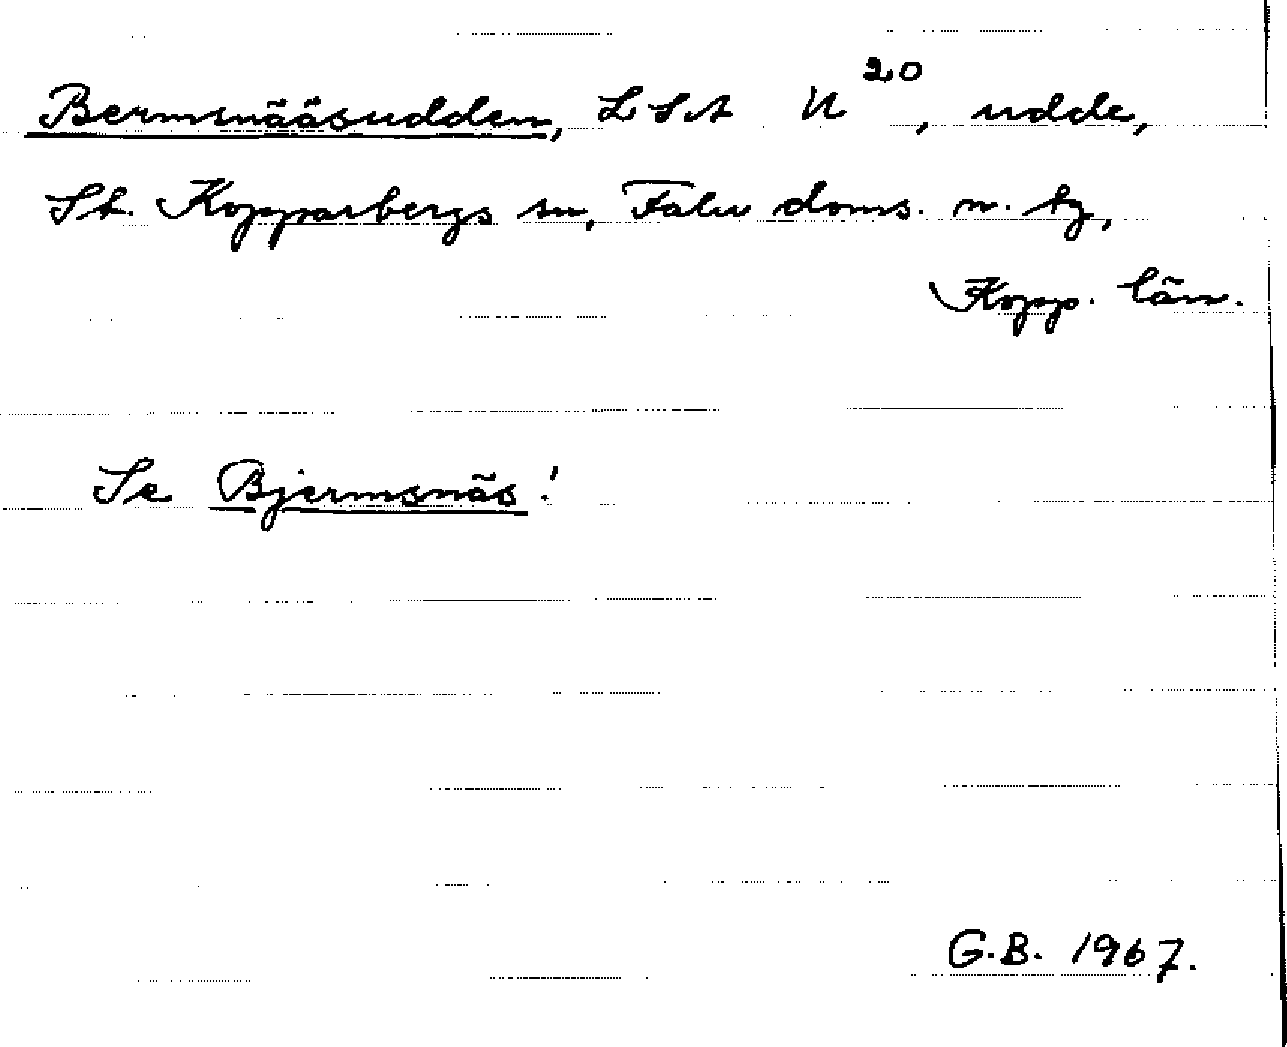 Bermsnääsudden, LSA U 20, udde,
St. Kopparbergs sn, Falu doms. n. tg,
Kopp. län.
Se Bjermsnäs!
G.B. 1967.